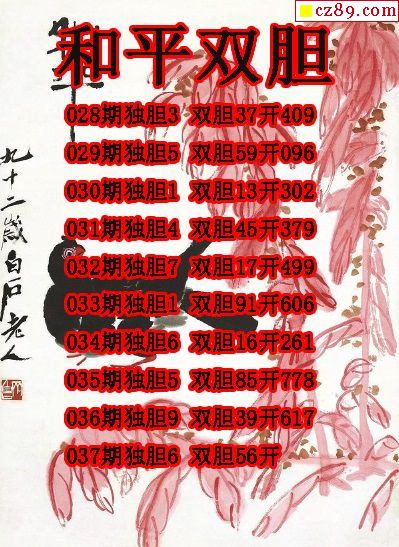 cz89.com
和平双胆
028期独胆3 双胆37开409
029期独胆5 双胆59开096
030期独胆1 双胆13开302
031期独胆4 双胆45开379
032期独胆7 双胆17开499
033期独胆1 双胆91开606
034期独胆6 双胆16开261
035期独胆5 双胆85开778
036期独胆9 双胆39开617
037期独胆6 双胆56开
九十二岁白石老人